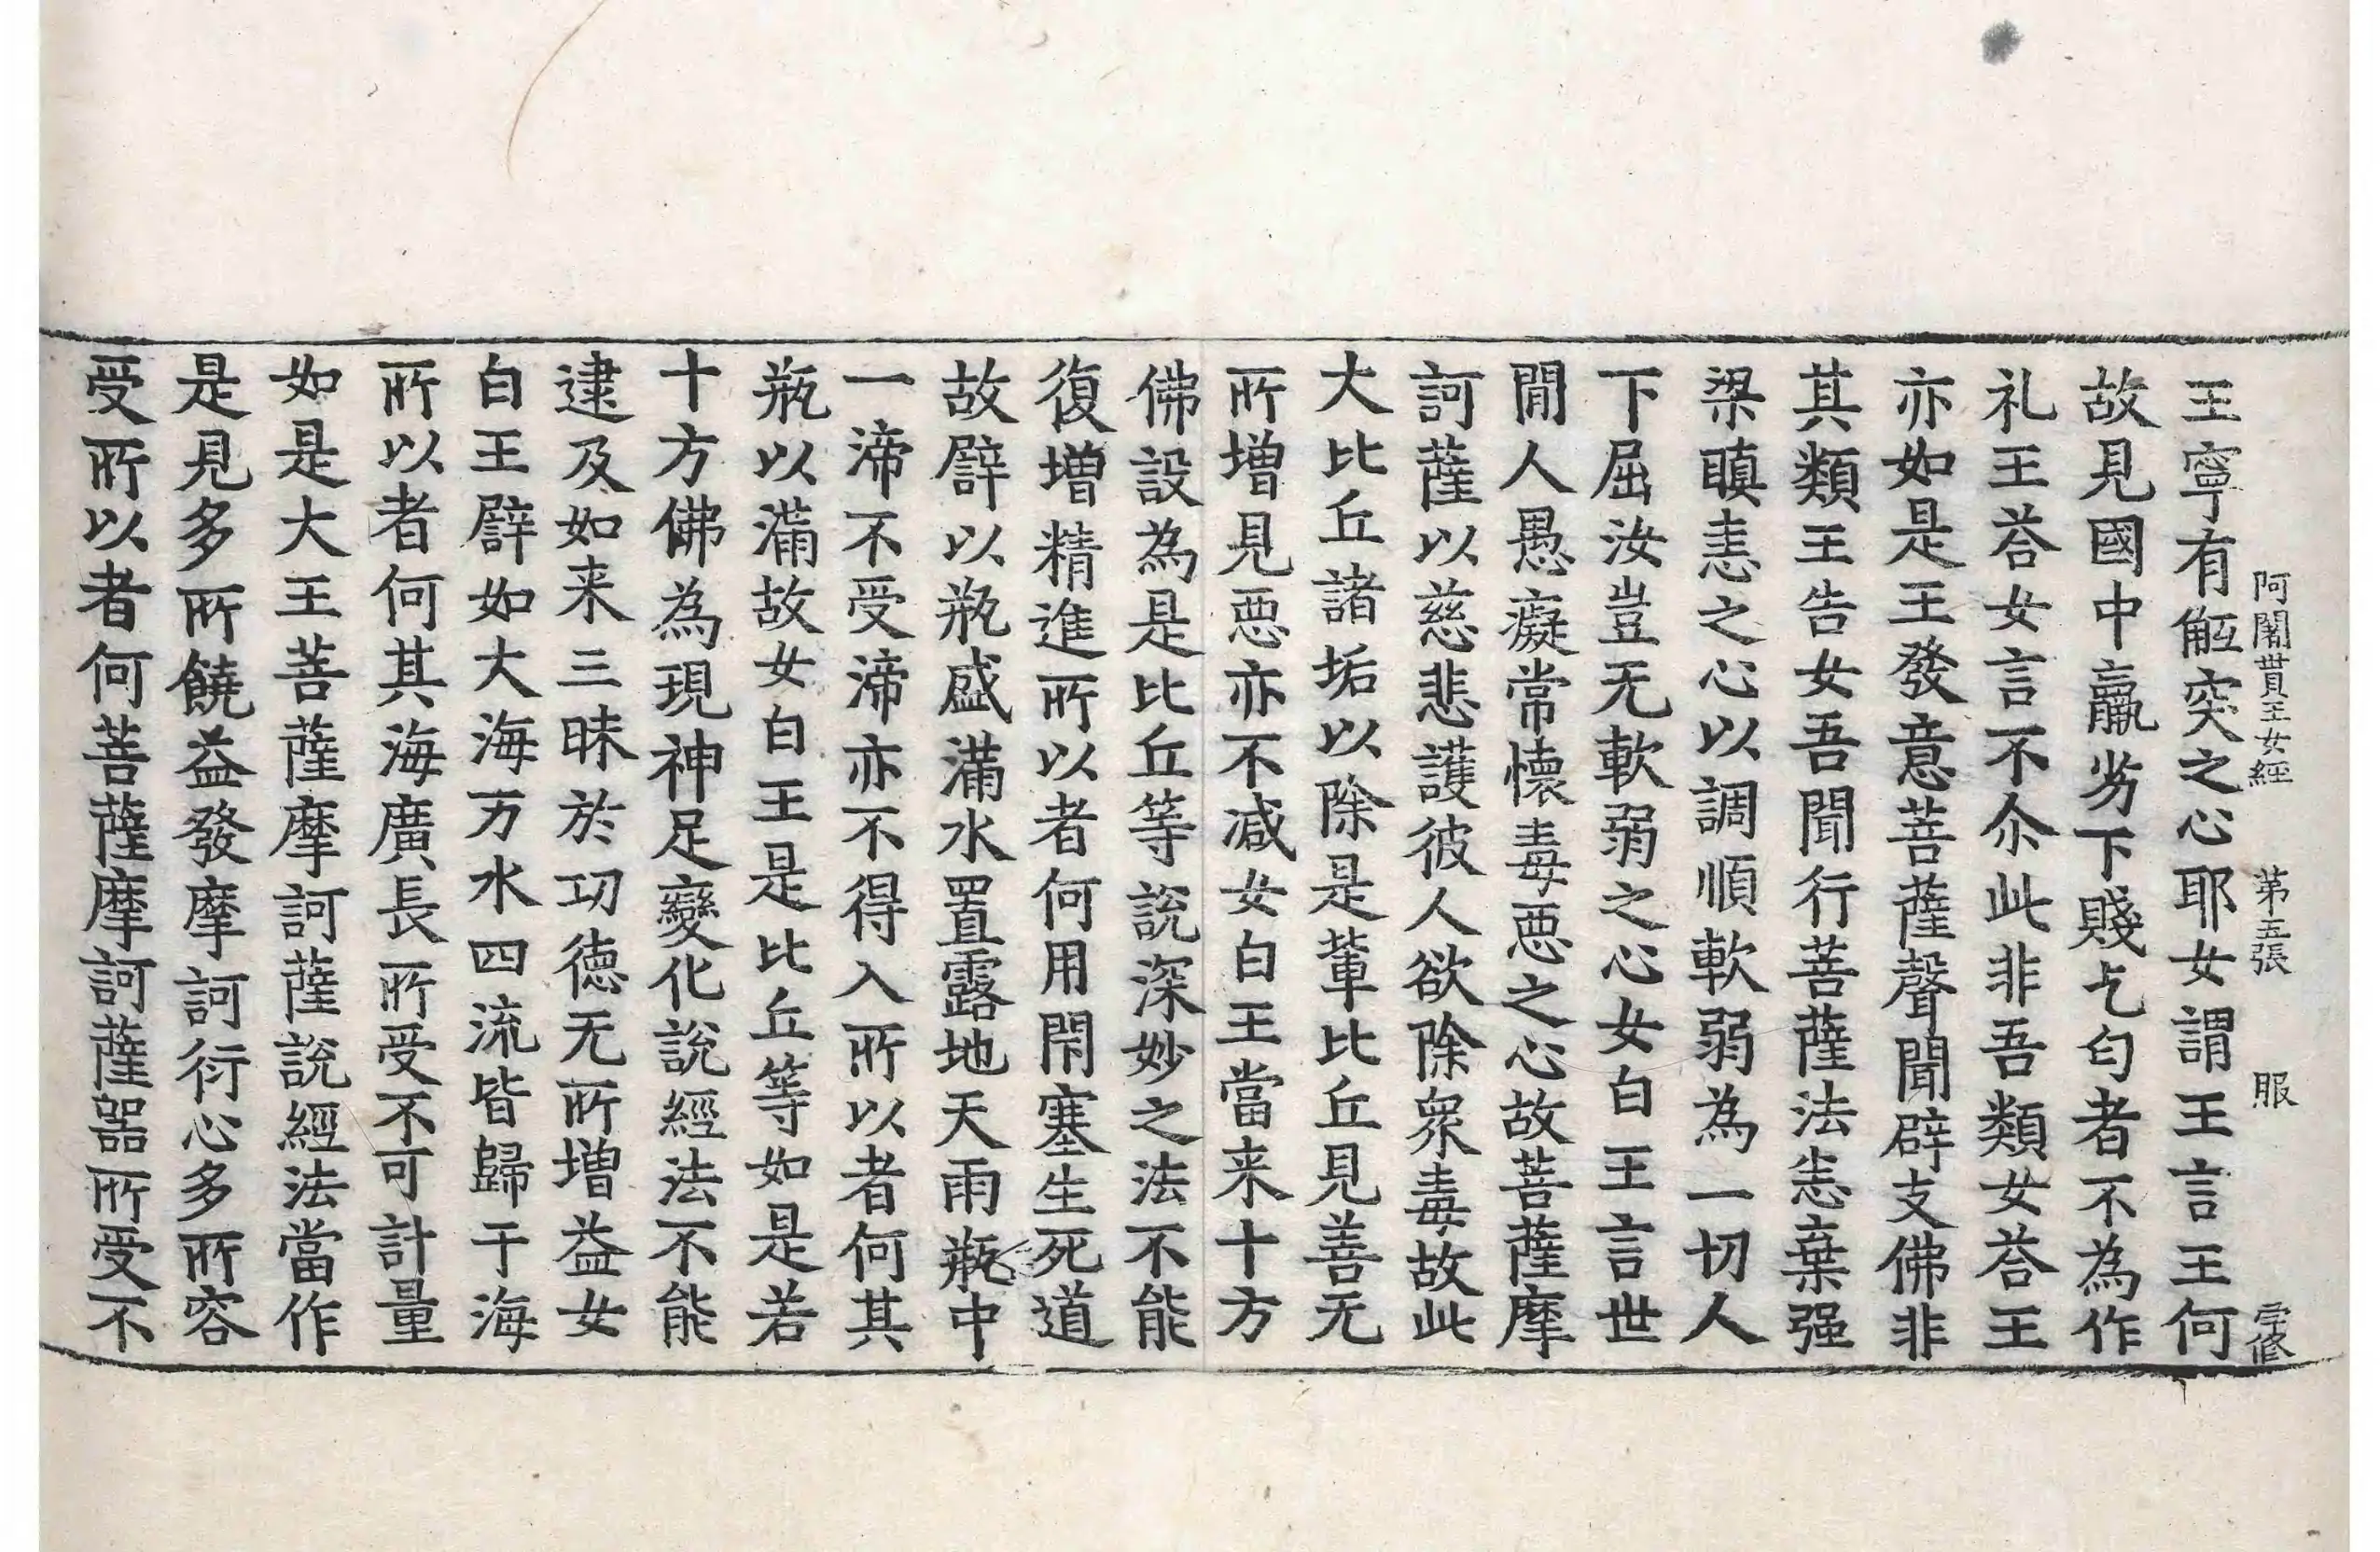 阿闍貰王女經　第五張　服
王寧有觝突之心耶女謂王言王何
故見國中羸劣下賤乞匂者不為作
礼王荅女言不尒此非吾類女荅王
亦如是王發意菩薩聲聞辟支佛非
其類王告女吾聞行菩薩法恙棄强
梁瞋恚之心以調順軟弱為一切人
下屈汝豈无軟弱之心女白王言世
閒人愚癡常懷毒惡之心故菩薩摩
訶薩以慈悲護彼人欲除衆毒故此
大比丘諸垢以除是輩比丘見善无
所增見惡亦不减女白王當来十方
佛設為是比丘等說深妙之法不能
復增精進所以者何用閇塞生死道
故辟以瓶盛滿水置露地天雨瓶中
一渧不受渧亦不得入所以者何其
瓶以滿故女白王是比丘等如是若
十方佛為現神足變化說經法不能
逮及如来三昧於功德无所增益女
白王辟如大海万水四流皆歸于海
所以者何其海廣長所受不可計量
如是大王菩薩摩訶薩說經法當作
是見多所饒益發摩訶衍心多所容
受所以者何菩薩摩訶薩器所受不